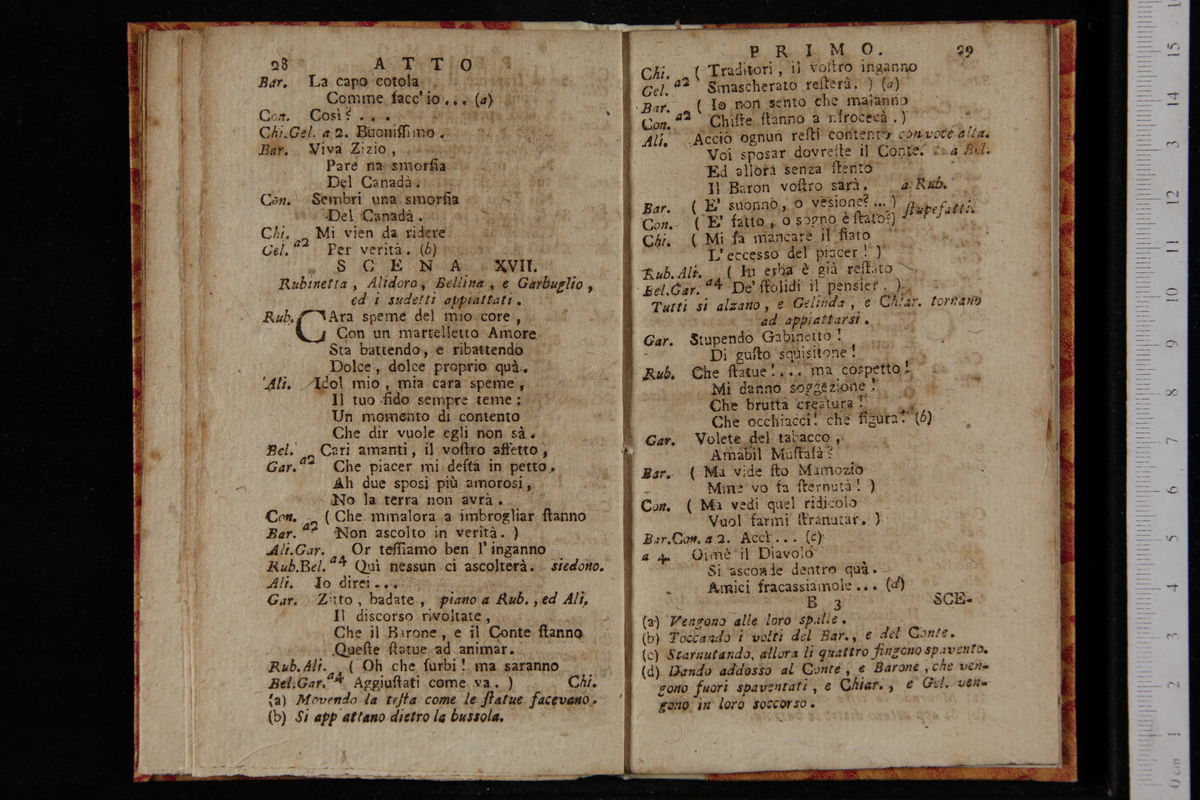 28 ATTO
Bar. La capo cotola
Comme facc'io... (a)
Con. Così? . . .
Chi.Gel. a 2. Buoniſſimo.
Bar. Viva Zizio,
Pare na smorfia
Del Canadà.
Con. Sembri una smorfia
Del Canadà.
Chi. Mi vien da ridere
Gel. a2 Per verità. (b)
SCENA XVII.
Rubinetta, Alidoro, Bellina, e Garbuglio,
ed i sudetti appiattati.
Rub. CAra speme del mio core,
Con un martelletto Amore
Sta battendo, e ribattendo
Dolce, dolce proprio quà.
Ali. Idol mio, mia cara speme,
Il tuo fido sempre teme:
Un momento di contento
Che dir vuole egli non sà.
Bel. Cari amanti, il voſtro affetto,
Gar. a2 Che piacer mi deſta in petto.
Ah due sposi più amorosi,
No la terra non avrà.
Con. (Che mmalora a imbrogliar ſtanno
Bar. a2 Non ascolto in verità.)
Ali.Gar. Or teſſiamo ben l'inganno
Rub.Bel. a4 Quì nessun ci ascolterà. siedono.
Ali. Io direi...
Gar. Zitto, badate, piano a Rub., ed Ali.
Il discorso rivoltate,
Che il Barone, e il Conte ſtanno
Queſte ſtatue ad animar.
Rub.Ali. (Oh che furbi! ma saranno
Bel.Gar. a4 Aggiuſtati come va.) Chi.
(a) Movendo la teſta come le ſtatue facevano.
(b) Si app attano dietro la bussola.
PRIMO. 29
Chi. (Traditori, il voſtro inganno
Gel. a2 Smascherato reſterà.) (a)
Bar. (Io non sento che malanno
Con. a2 Chiſte ſtanno a nfrocecà.)
Ali. Acciò ognun reſti contento con voce alta.
Voi sposar dovreſte il Conte. a Bel.
Ed allora senza ſtento
Il Baron voſtro sarà. a Rub.
Bar. (E' suonno, o vesione?...) ſtupefatti.
Con. (E' fatto, o sogno è ſtato?)
Chi. (Mi fa mancare il fiato
L'eccesso del piacer!)
Rub.Ali. (In erba è già reſtato
Bel.Gar. a4 De' ſtolidi il pensier.)
Tutti si alzano, e Gelinda, e Chiar. tornano
ad appiattarsi.
Gar. Stupendo Gabinetto!
Di guſto squisitone!
Rub. Che ſtatue!... ma cospetto!
Mi danno soggezione!
Che brutta creatura!
Che occhiacci! che figura! (b)
Gar. Volete del tabacco,
Amabil Muſtafà?
Bar. (Ma vide ſto Mamozio
Mme vo fa ſternutà!)
Con. (Ma vedi quel ridicolo
Vuol farmi ſtranutar.)
Bar.Con. a 2. Accì... (c)
a 4. Oimè il Diavolo
Si asconde dentro quà.
Amici fracassiamole... (d)
B 3 SCE-
(a) Vengono alle loro spalle.
(b) Toccando i volti del Bar., e del Conte.
(c) Starnutando, allora li quattro fingono spavento.
(d) Dando addosso al Conte, e Barone, che ven-
gono fuori spaventati, e Chiar., e Gel. ven-
gono in loro soccorso.
15
14
13
12
11
10
9
8
7
6
5
4
3
2
1
0 cm